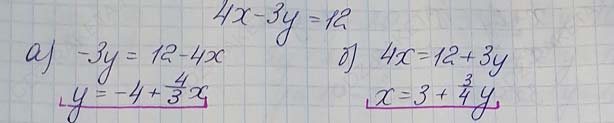 4x-3y=12
а) -3y = 12-4x
y = -4 + 4/3 x
б) 4x = 12 + 3y
x = 3 + 3/4 y